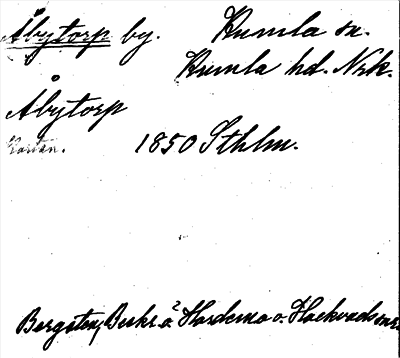 Åbytorp by. Kumla sn.
Kumla hd. Nrk.
Åbytorp
Kartan. 1850 Sthlm.
Bergsten, Beskr. å Hardemo o. Hackvads snr.